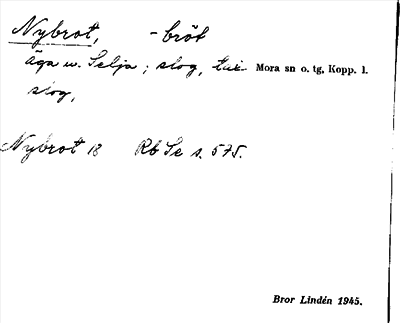 Nybrot, -brôt
äga u. Selja; slog, Mora sn o. tg, Kopp. l.
slog,
Nybrot 18 Rb Se s. 575.
Bror Lindén 1945.